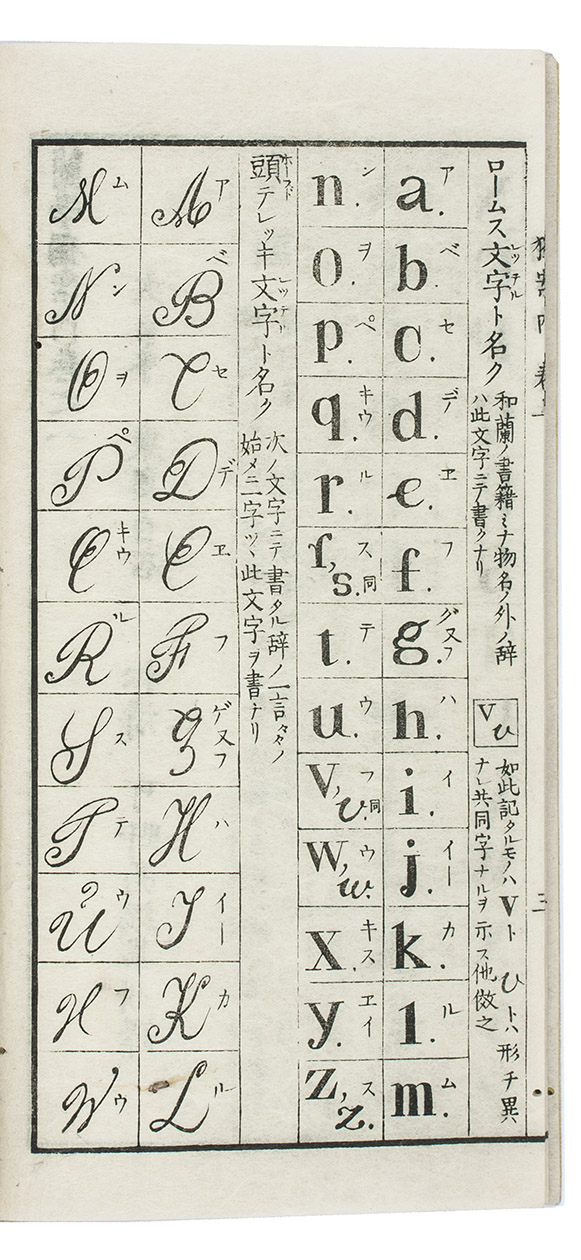 ロームス文字ト名ク
レッテル
和蘭ノ書籍ミナ物名ノ外ノ辞
ハ此文字ニテ書クナリ
V v
如此記タルモノハ V ト v トハ形チ異
ナレ共同字ナルヲ示ス他倣之
三
a. ア
b. ベ
c. セ
d. デ
e. ヱ
f. フ
g. ゲ又フ
h. ハ
i. イ
j. イー
k. カ
l. ル
m. ム
n. ン
o. ヲ
p. ペ
q. キウ
r. ル
ſ, s. ス同
t. テ
u. ウ
V, v. フ同
W, w. ウ
x. キス
y. ヱイ
Z, z. ス
頭テレッキ文字ト名ク
ホーフド
レッテル
次ノ文字ニテ書タル辞ノ一言々々ノ
始メニ一字ツヽ此文字ヲ書ナリ
A ア
B ベ
C セ
D デ
E ヱ
F フ
G ゲ又フ
H ハ
I イー
K カ
L ル
M ム
N ン
O ヲ
P ペ
Q キウ
R ル
S ス
T テ
U ウ
V フ
W ウ